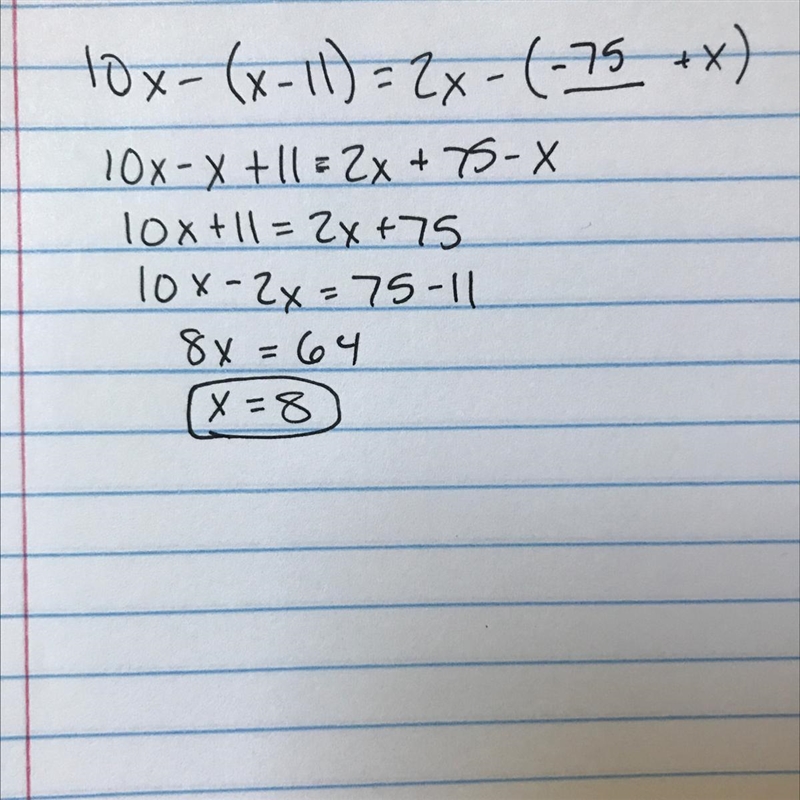 10x - (x - 11) = 2x - (-75 + x)
10x - x + 11 = 2x + 75 - x
10x + 11 = 2x + 75
10x - 2x = 75 - 11
8x = 64
x = 8